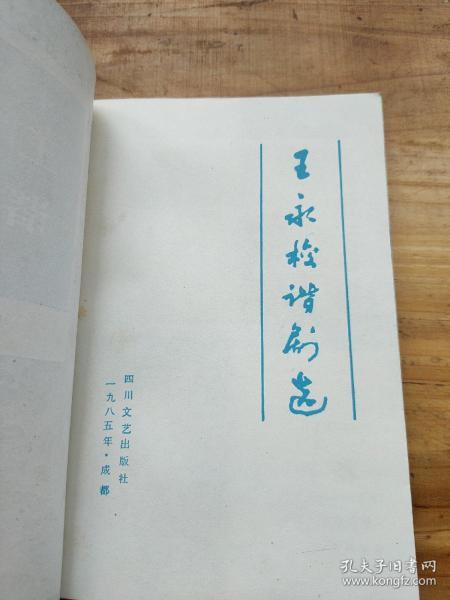 王永梭谐剧选
四川文艺出版社
一九八五年·成都
孔夫子旧书网
www.kongfz.com